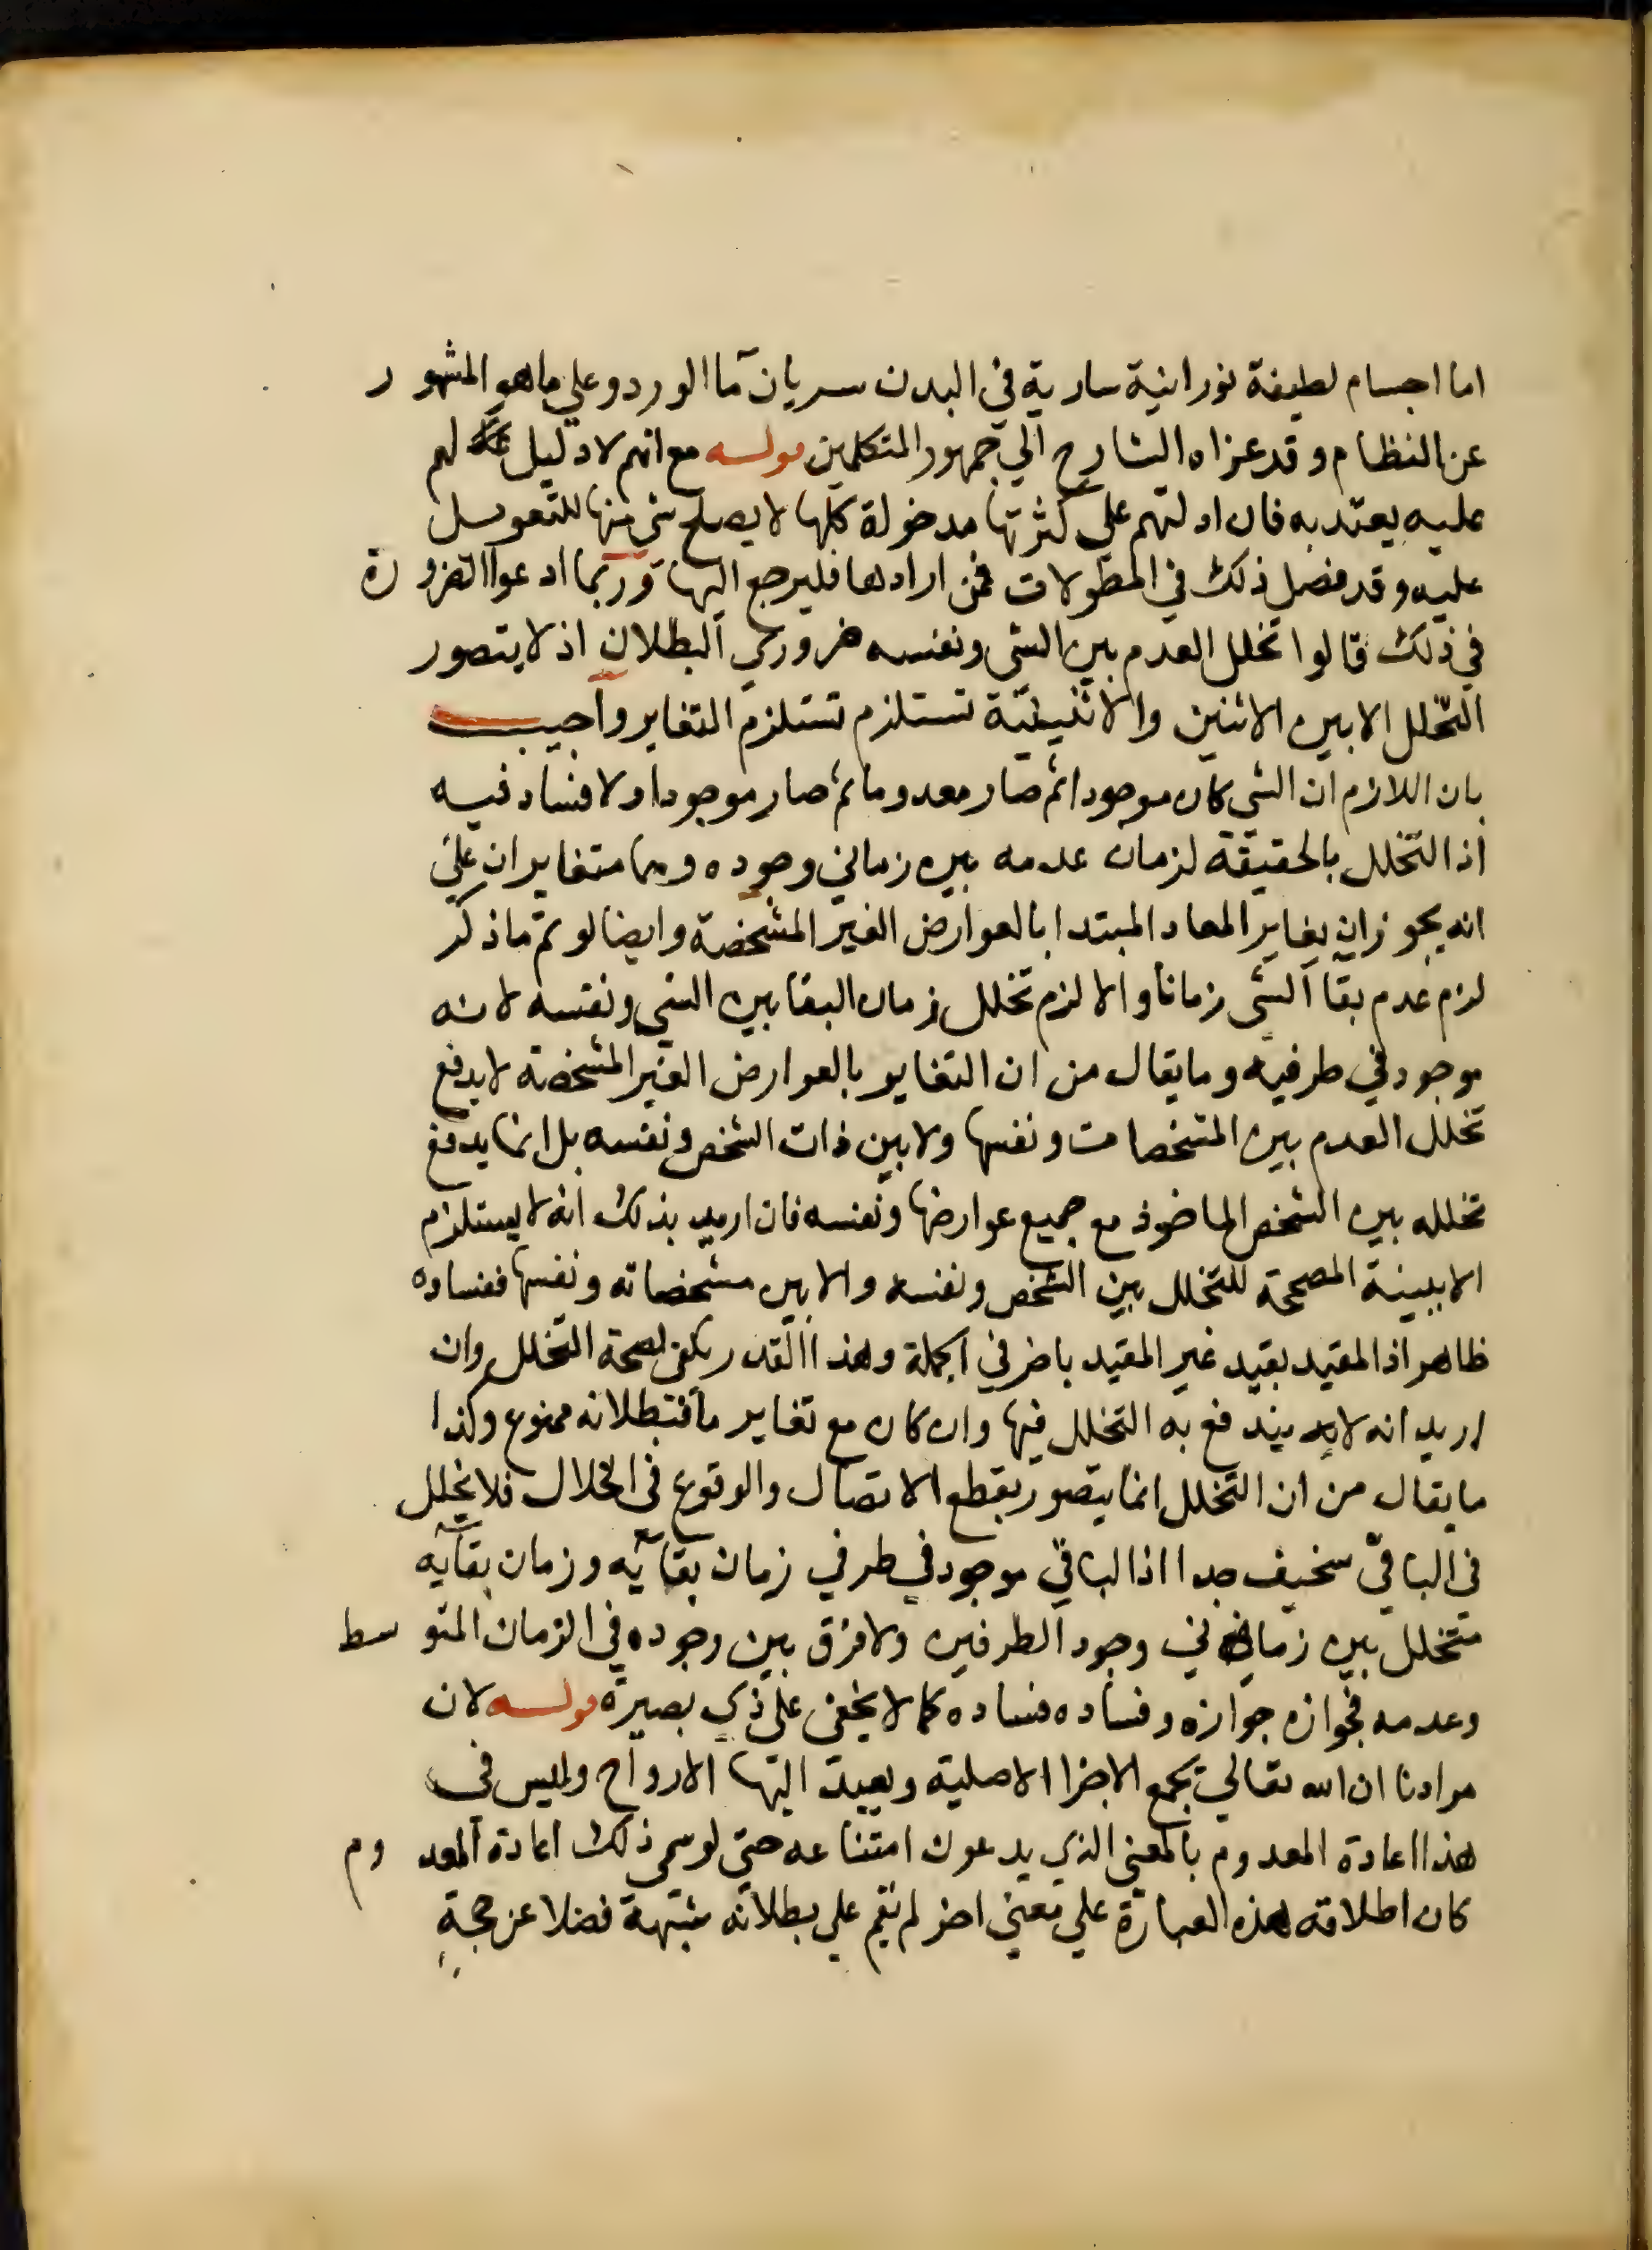 اما اجسام لطيفة نورانية سارية في البدن سريان ما الورد وعلي ما هو المشهور
عن النظام وقد عزاه الشارح الي جمهور المتكلمين قوله مع انهم لا دليل لهم
عليه يعتد به فان ادلتهم علي كثرتها مدخولة كلها لا يصلح شي منها للتعويل
عليه وقد فصل ذلك في المطولات فمن ارادها فليرجع اليها وربما ادعوا الضرورة
في ذلك قالوا تخلل العدم بين الشي ونفسه ضروري البطلان اذ لا يتصور
التخلل الا بين الاثنين والاثنينية تستلزم تستلزم التغاير واجيب
بان اللازم ان الشي كان موجودا ثم صار معدوما ثم صار موجودا ولا فساد فيه
اذ التخلل بالحقيقة لزمان عدمه بين زماني وجوده وهما متغايران علي
انه يجوز ان يغاير المعاد المبتدا بالعوارض الغير المشخصة وايضا لو تم ما ذكر
لزم عدم بقا الشي زمانا والا لزم تخلل زمان البقا بين الشي ونفسه لانه
موجود في طرفيه وما يقال من ان التغاير بالعوارض الغير المشخصة لا يدفع
تخلل العدم بين المشخصات ونفسها ولا بين ذات الشخص ونفسه بل انما يدفع
تخلله بين الشخص الماخوذ مع جميع عوارضها ونفسه فان اريد بذلك انه لا يستلزم
الابينية المصححة للتخلل بين الشخص ونفسه والا بين مشخصاته ونفسها ففساده
ظاهر اذ المقيد بقيد غير المقيد باخر في الجملة وهذا القدر يكفي لصحة التخلل وان
اريد انه لا يندفع به التخلل فيها وان كان مع تغاير ما فبطلانه ممنوع وكذا
ما يقال من ان التخلل انما يتصور بقطع الاتصال والوقوع في الخلال فلا تخلل
في الباقي سخيف جدا اذ الباقي موجود في طرفي زمان بقآيه وزمان بقآيه
متخلل بين زماني وجود الطرفين ولا فرق بين وجوده في الزمان المتوسط
وعدمه فجوازه جوازه وفساده فساده كما لا يخفي علي ذي بصيرة قوله لان
مرادنا ان الله تعالي يجمع الاجزا الاصلية ويعيد اليها الارواح وليس في
هذا اعادة المعدوم بالمعني الذي يدعون امتناعه حتي لو سمي ذلك اعادة المعدوم
كان اطلاقه هذه العبارة علي معني اخر لم تقم علي بطلانه شبهة فضلا عن حجة